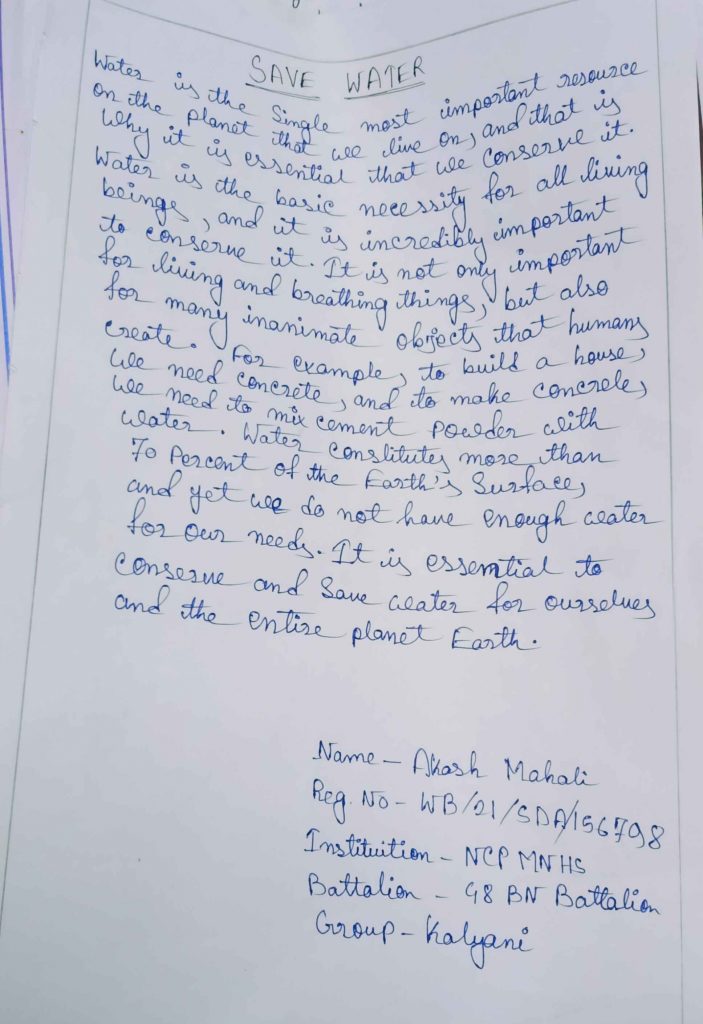 SAVE WATER
Water is the Single most important resource
on the planet that we live on, and that is
why it is essential that we conserve it.
Water is the basic necessity for all living
beings, and it is incredibly important
to conserve it. It is not only important
for living and breathing things, but also
for many inanimate objects that humans
create. For example, to build a house,
we need concrete, and to make concrete,
we need to mix cement powder with
water. Water constitutes more than
70 Percent of the Earth's Surface,
and yet we do not have enough water
for our needs. It is essemtial to
conserve and Save water for ourselves
and the entire planet Earth.
Name - Akash Mahali
Reg. No - WB/21/SDA/156798
Instituition - NCP MNHS
Battalion - 48 BN Battalion
Group - Kalyani